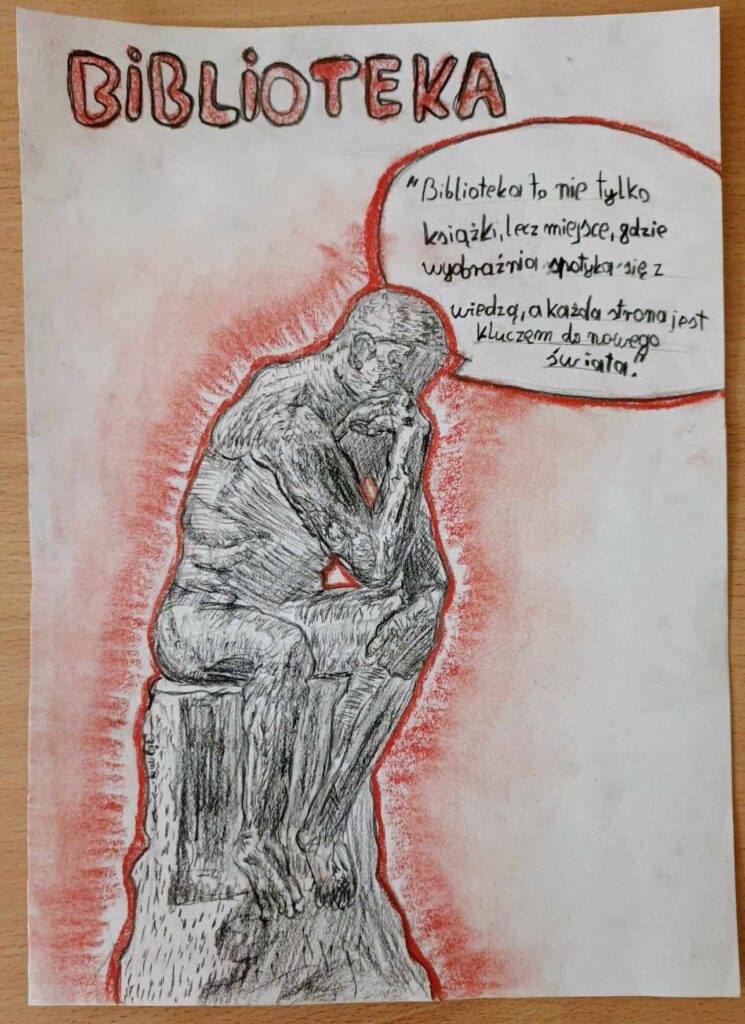 BiBLiOTEKA
"Biblioteka to nie tylko
książki, lecz miejsce, gdzie
wyobraźnia spotyka się z
wiedzą, a każda strona jest
kluczem do nowego
świata."